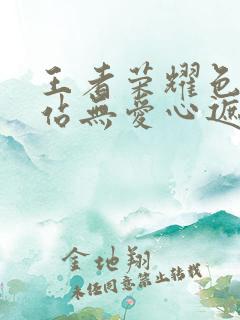 王者荣耀色
佔無愛心遮
金地翔
未经同意禁止转载